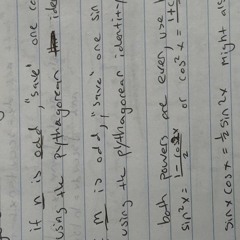 if n is odd, "save" one co
using the pythagorean ide
m is odd, "save" one sin
using the pythagorean identity
both powers are even, use
sin²x = 1-cos2x / 2 or cos²x = 1+c
sinx cosx = ½ sin2x might als